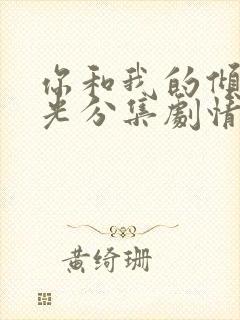 你和我的倾
光分集剧情
黄绮珊